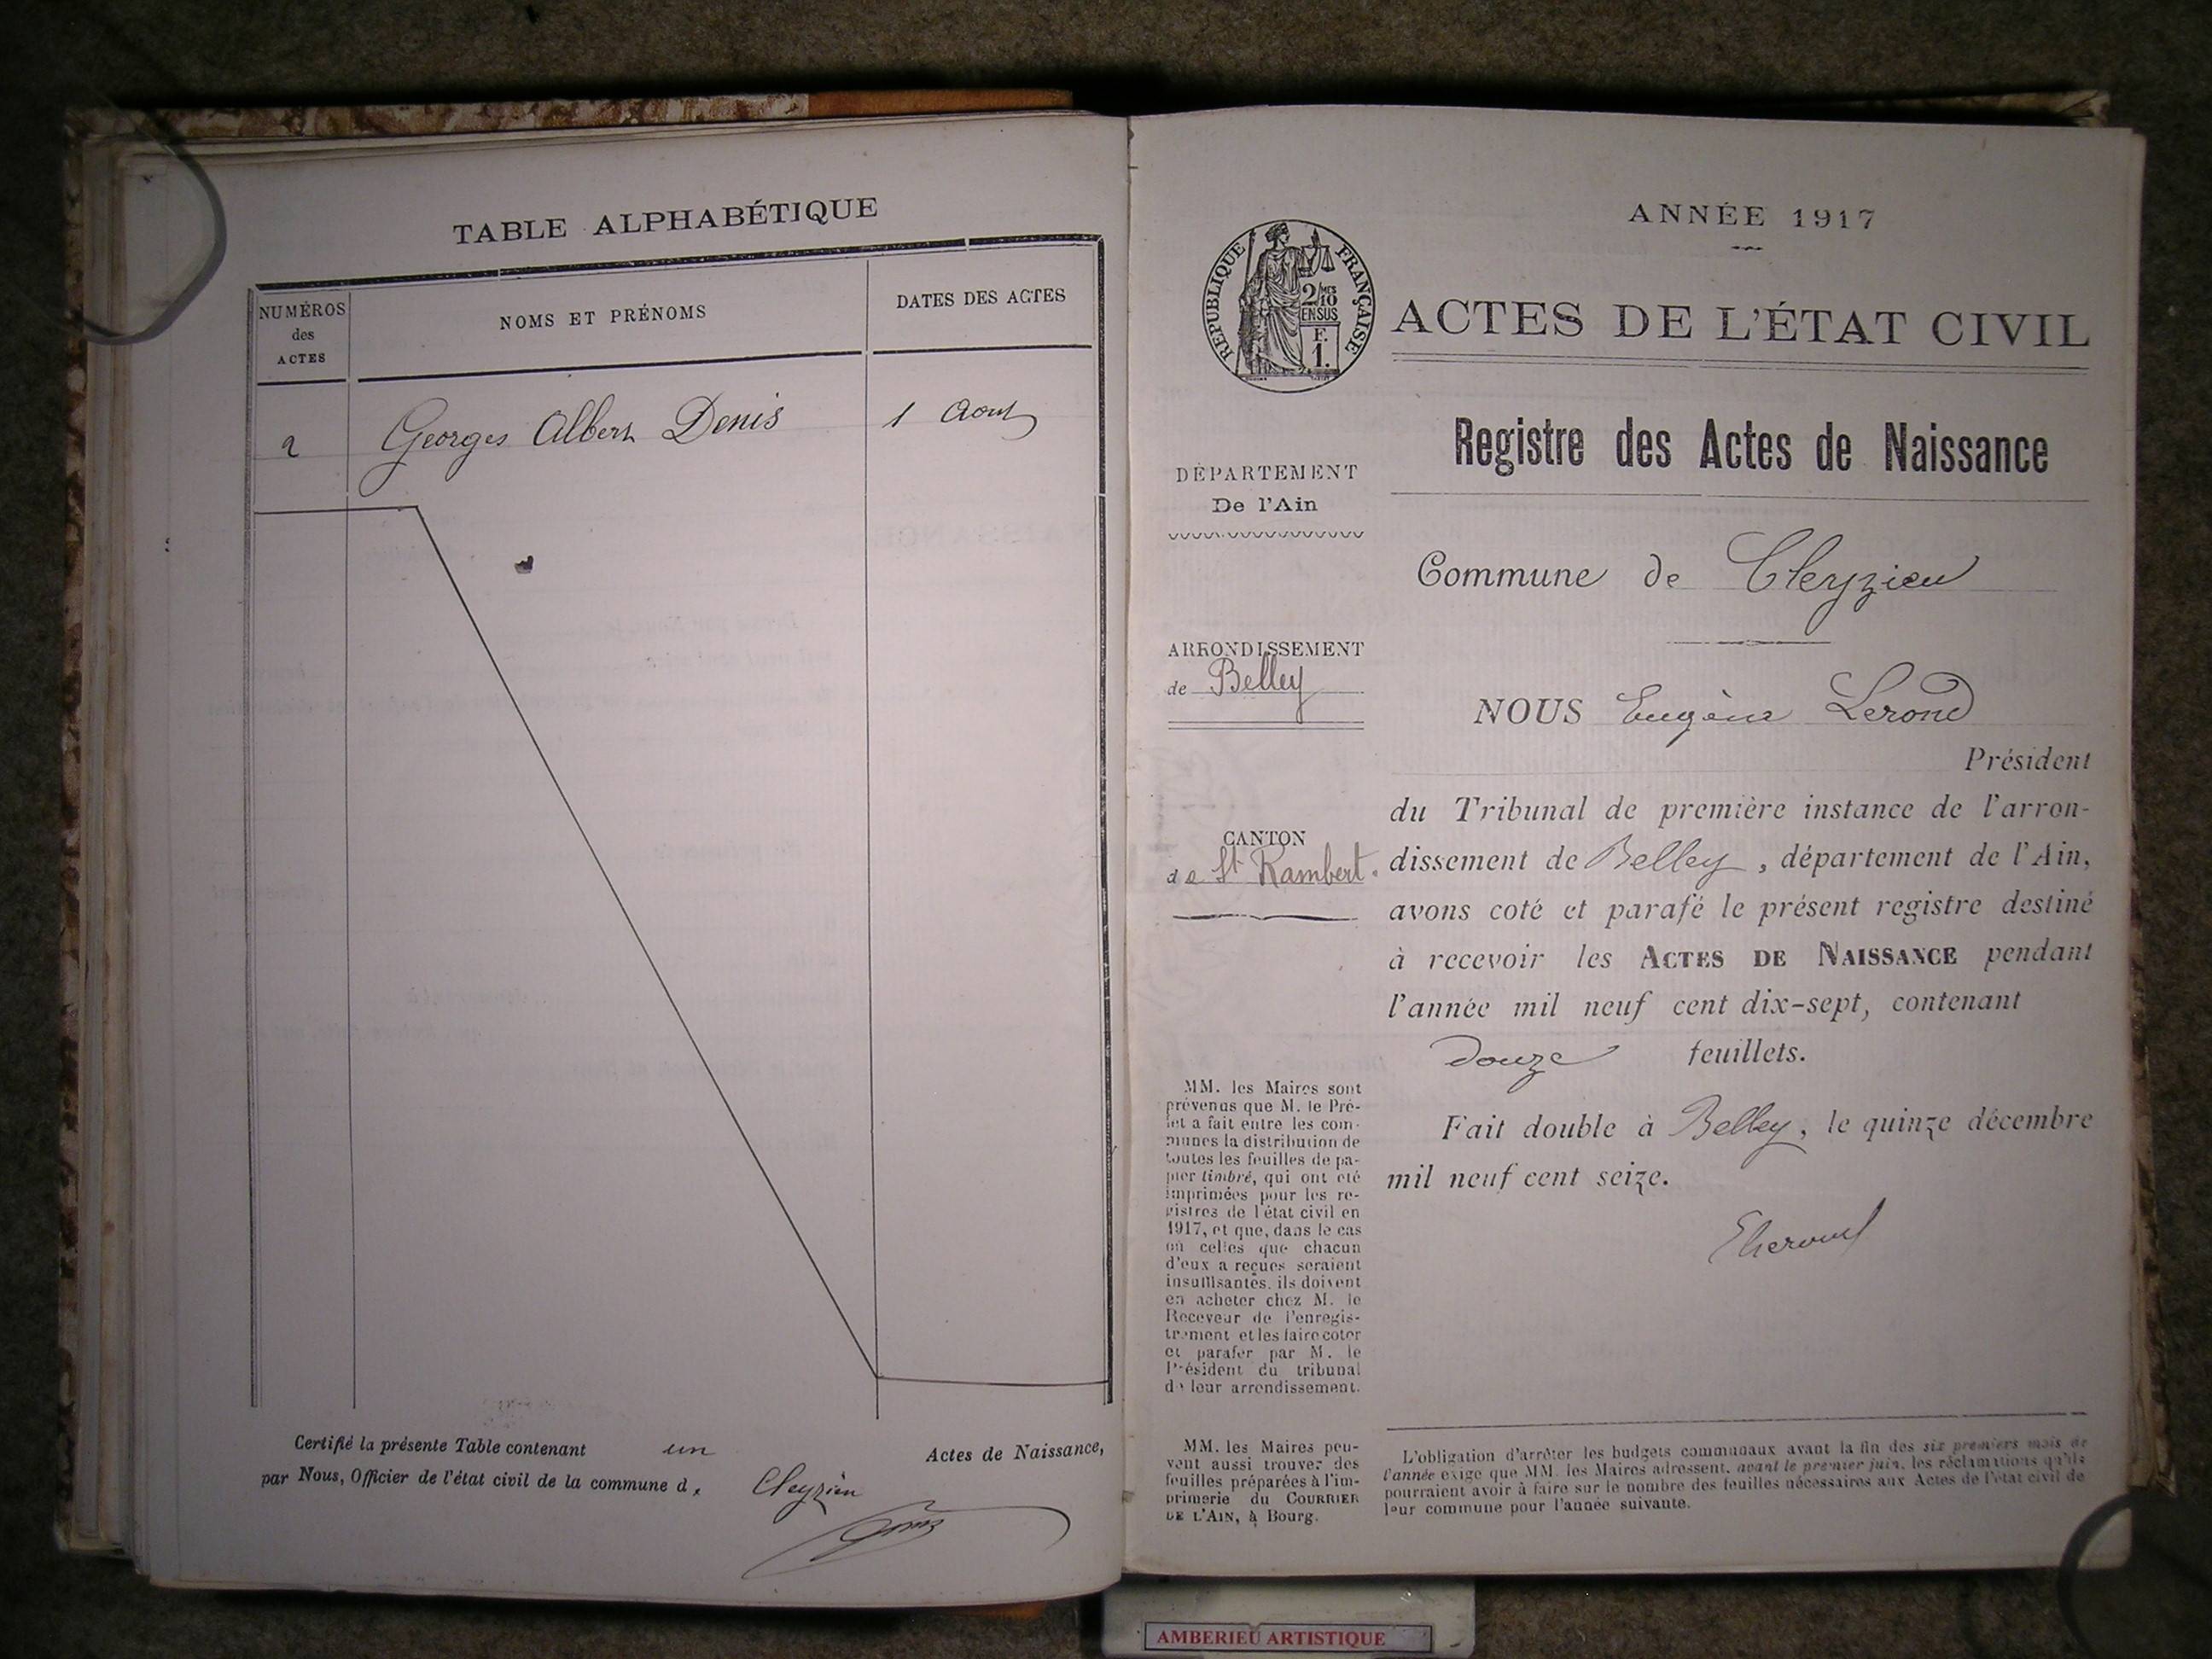 TABLE ALPHABÉTIQUE
NUMÉROS
des
ACTES
NOMS ET PRÉNOMS
DATES DES ACTES
2
Georges Albert Denis
1 Aout
Certifié la présente Table contenant un Actes de Naissance,
par Nous, Officier de l'état civil de la commune d, Cleyzieu
ANNÉE 1917
RÉPUBLIQUE FRANÇAISE
2/MES
10
EN SUS
F.
1.
ACTES DE L'ÉTAT CIVIL
Registre des Actes de Naissance
DÉPARTEMENT
De l'Ain
Commune de Cleyzieu
ARRONDISSEMENT
de Belley
NOUS Eugène Lerond
Président
du Tribunal de première instance de l'arron-
CANTON
de St Rambert.
dissement de Belley, département de l'Ain,
avons coté et parafé le présent registre destiné
à recevoir les ACTES DE NAISSANCE pendant
l'année mil neuf cent dix-sept, contenant
douze feuillets.
Fait double à Belley, le quinze décembre
mil neuf cent seize.
MM. les Maires sont
prévenus que M. le Pré-
fet a fait entre les com-
munes la distribution de
toutes les feuilles de pa-
pier timbré, qui ont été
imprimées pour les re-
gistres de l'état civil en
1917, et que, dans le cas
où celles que chacun
d'eux a reçues seraient
insuffisantes, ils doivent
en acheter chez M. le
Receveur de l'enregis-
trement et les faire coter
et parafer par M. le
Président du tribunal
de leur arrondissement.
MM. les Maires peu-
vent aussi trouver des
feuilles préparées à l'im-
primerie du COURRIER
DE L'AIN, à Bourg.
L'obligation d'arrêter les budgets communaux avant la fin des six premiers mois de
l'année exige que MM. les Maires adressent, avant le premier juin, les réclamations qu'ils
pourraient avoir à faire sur le nombre des feuilles nécessaires aux Actes de l'état civil de
leur commune pour l'année suivante.
AMBERIEU ARTISTIQUE